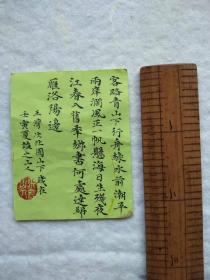 客路青山下行舟綠水前潮平
兩岸濶風正一帆懸海日生殘夜
江春入舊年鄉書何處達歸
雁洛陽邊
王灣次北固山下歲在
壬寅夏